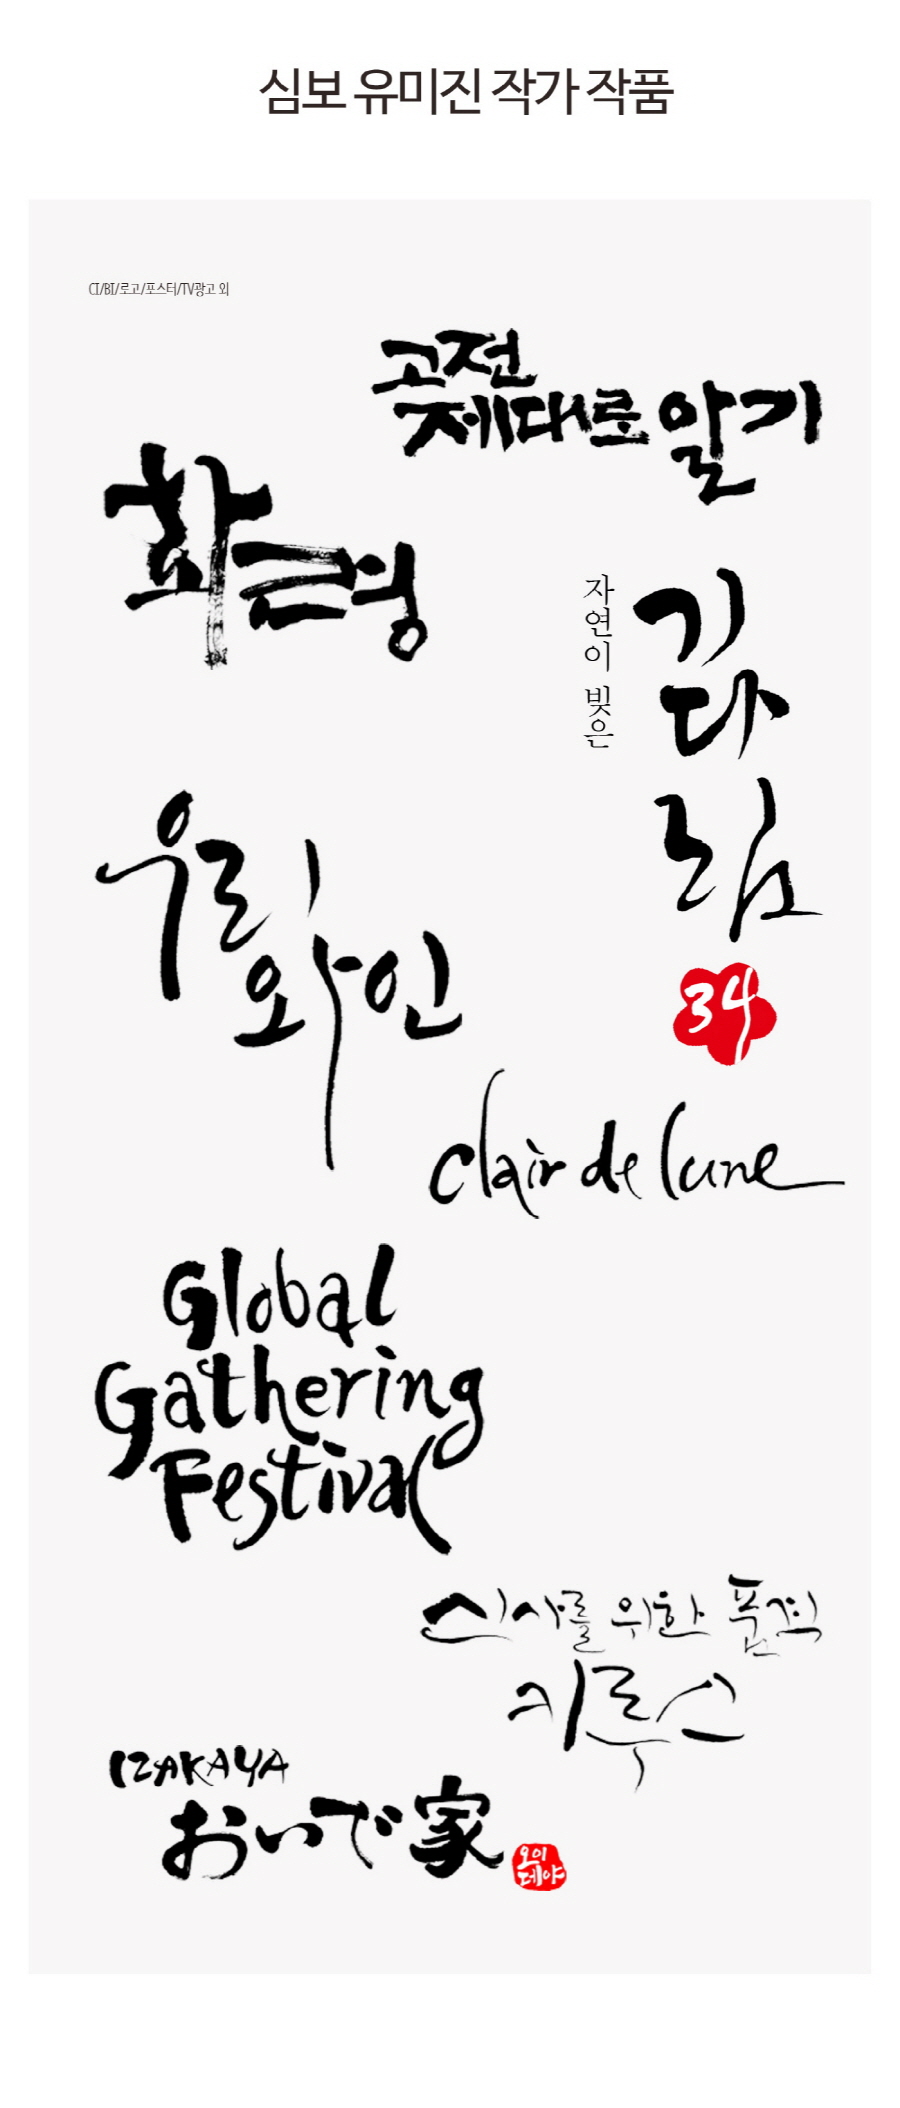 심보 유미진 작가 작품
CI/BI/로고/포스터/TV광고 외
고전
제대로 알기
화근영
자연이 빚은
기다림
34
우리
와인
clair de lune
Global
Gathering
Festival
의사를 위한 품격
키루스
IZAKAYA
おいで家
오이
데야